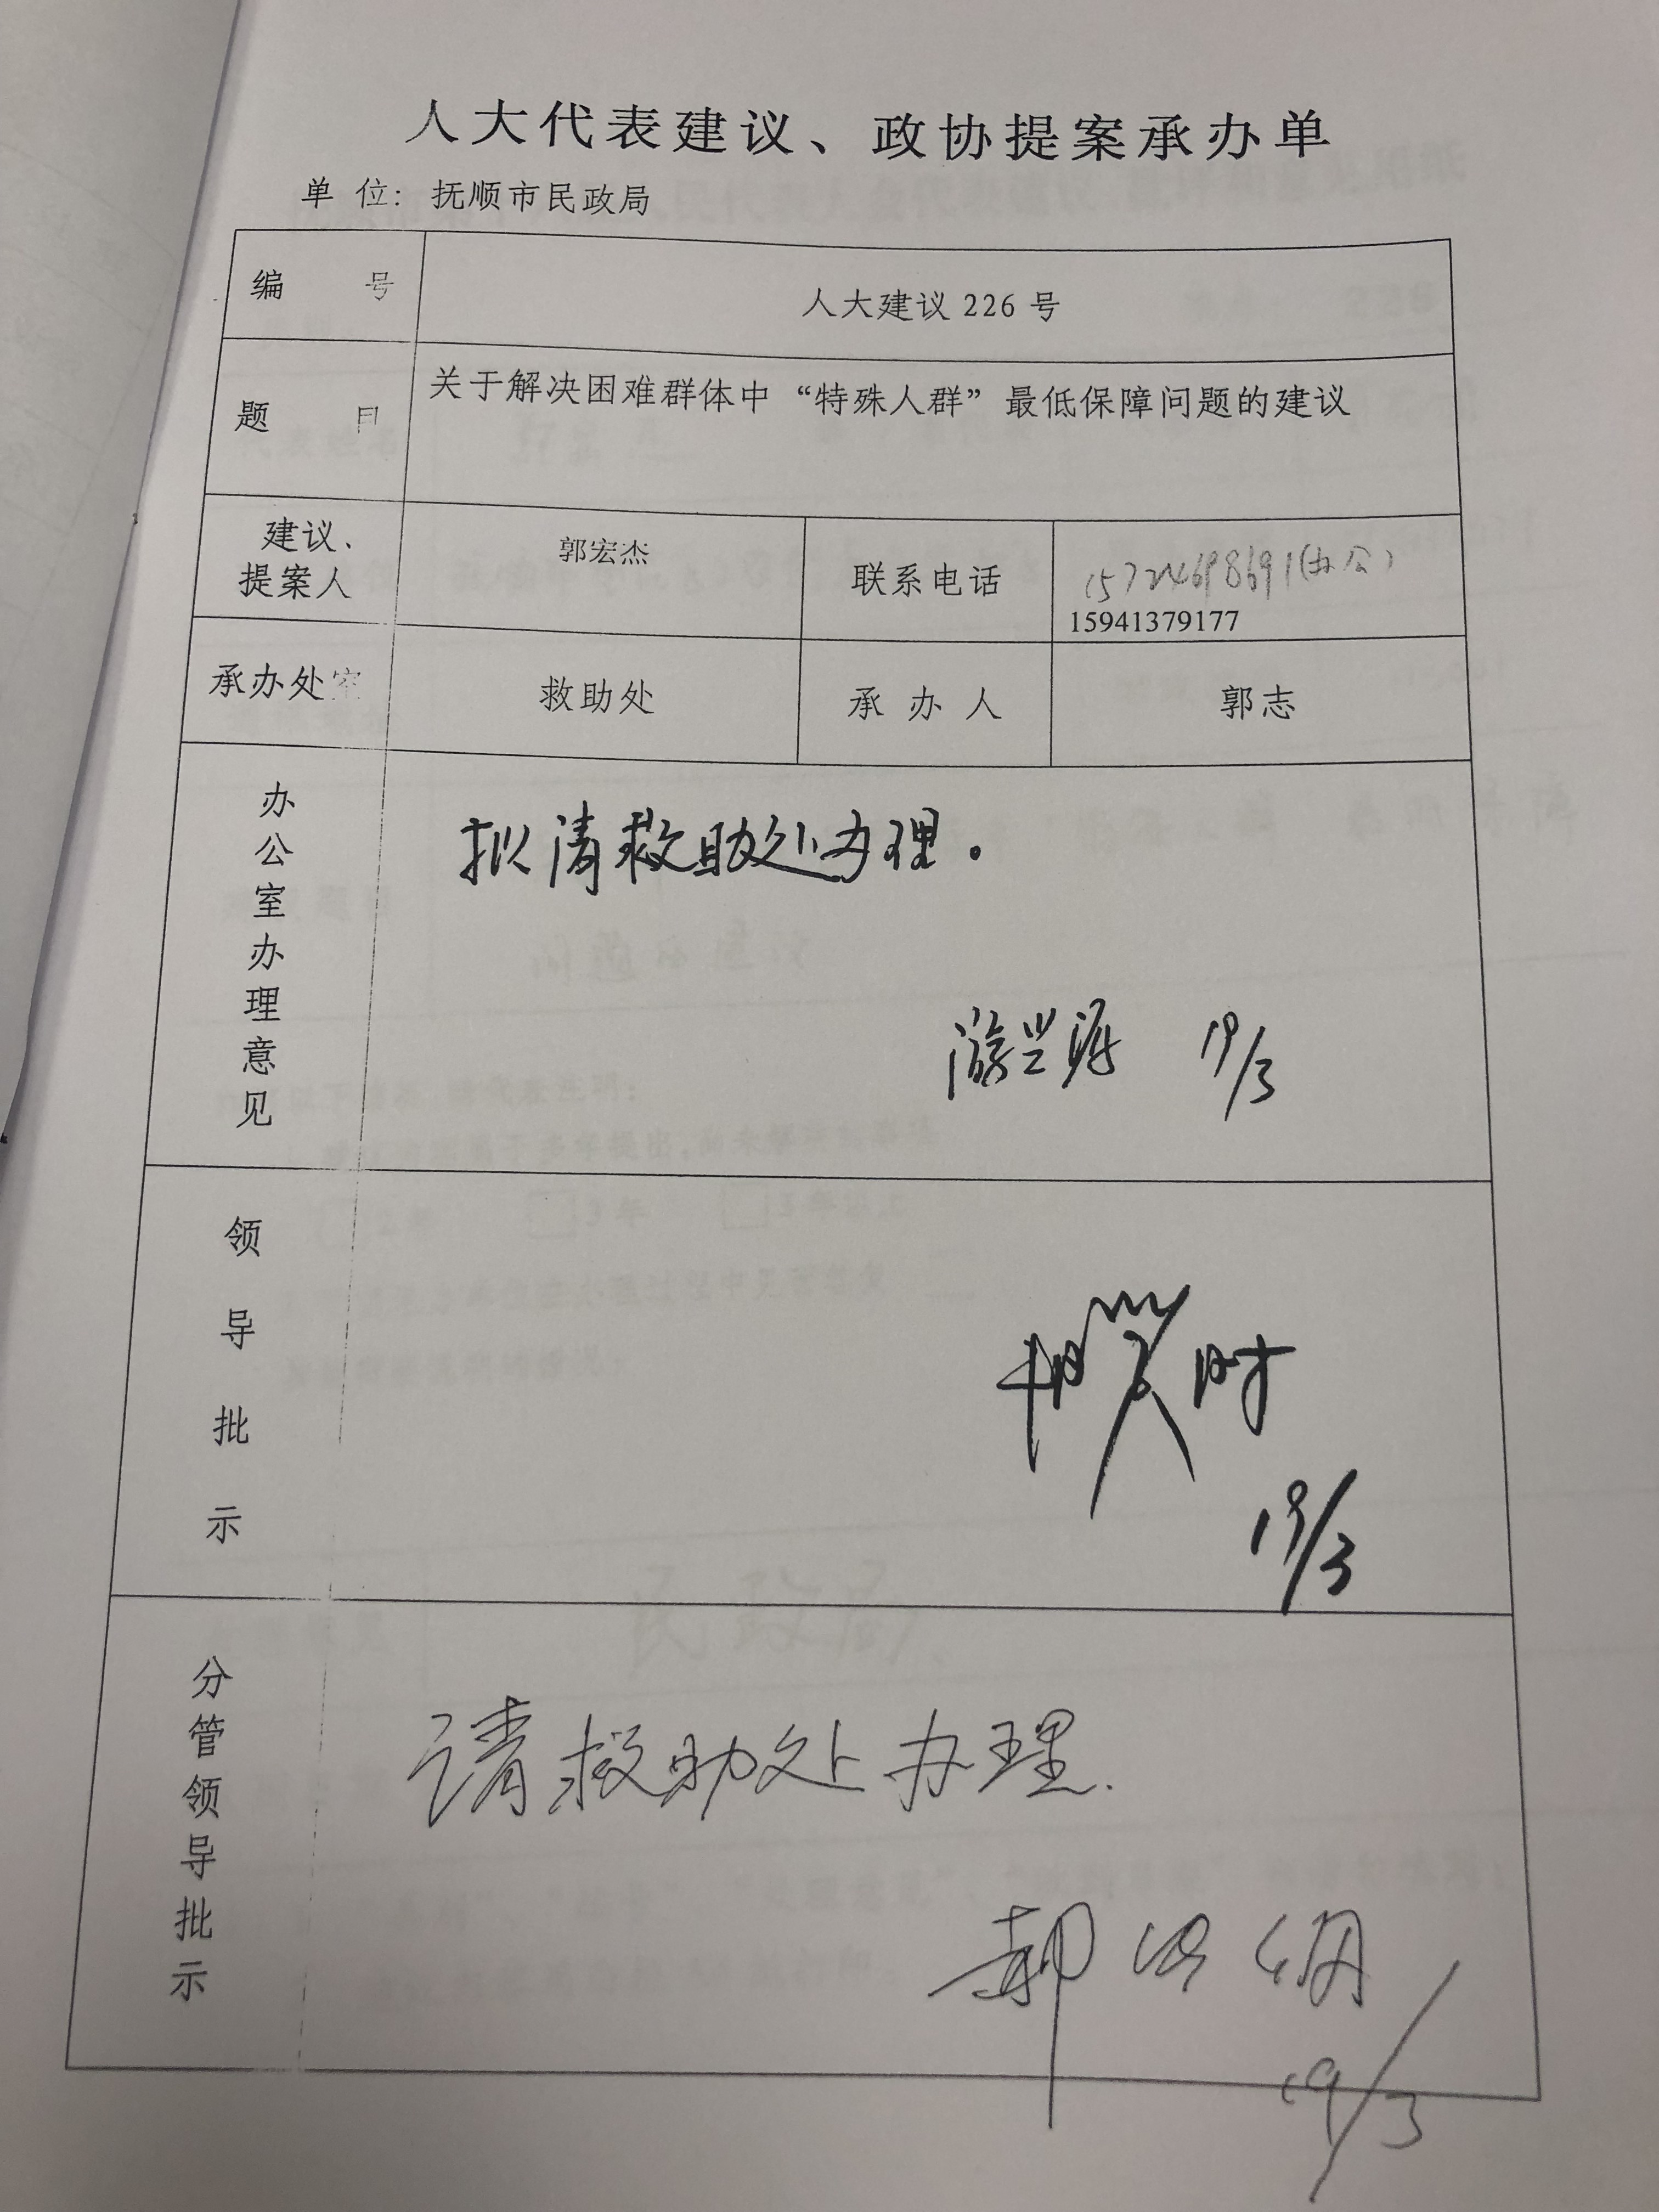 人大代表建议、政协提案承办单
单 位：抚顺市民政局
编 号
人大建议 226 号
题 目
关于解决困难群体中“特殊人群”最低保障问题的建议
建议、
提案人
郭宏杰
联系电话
15724698691(办公)
15941379177
承办处室
救助处
承 办 人
郭志
办公室办理意见
拟请救助处办理。
19/3
领导批示
19/3
分管领导批示
请救助处办理.
19/3